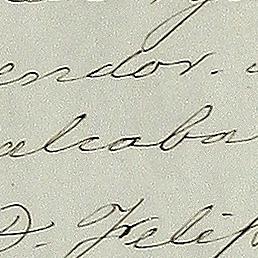 endor.
alcaba
D. Felip